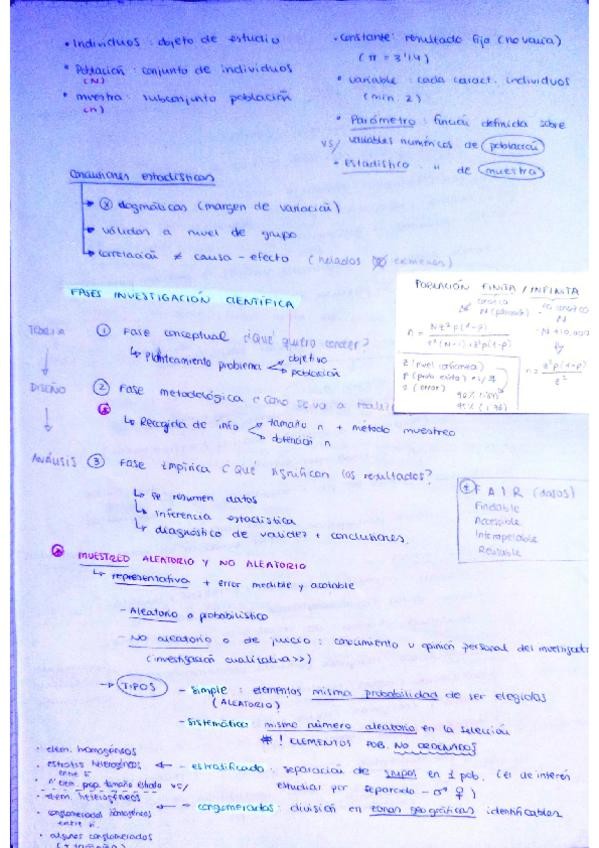 • Individuos : objeto de estudio
• Población : conjunto de individuos
(N)
• muestra : subconjunto población
(n)
• constante : resultado fijo (no varía)
(π = 3'14)
• variable : cada caract. individuos
(min. 2)
• Parámetro : función definida sobre
vs/ variables numéricas de población
• Estadístico " de muestra
Conclusiones estadísticas
dogmáticas (margen de variación)
válidas a nivel de grupo
correlación ≠ causa - efecto (helados exámenes)
FASES INVESTIGACIÓN CIENTÍFICA
POBLACIÓN FINITA / INFINITA
N (población)
N
n =
z²(N-1)+z²p(1-p)
Z (nivel confianza)
(error)
TEORÍA
① Fase conceptual ¿Qué quiero conocer?
↳ Planteamiento problema objetivo
población
DISEÑO
② Fase metodológica ¿Cómo se va a
↳ Recogida de info tamaño n + método muestreo
obtención n
ANÁLISIS ③ Fase empírica ¿Qué significan los resultados?
↳ resumen datos
↳ inferencia estadística
↳ diagnóstico de validez + conclusiones.
F A I R (datos)
Findable
Accesible
Interoperable
Reusable
MUESTREO ALEATORIO Y NO ALEATORIO
↳ representativa + error medible y acotable
- Aleatorio o probabilístico
- No aleatorio o de juicio : conocimiento u opinión personal del investigador
(investigación cualitativa >>)
→ TIPOS - Simple : elementos misma probabilidad de ser elegidos
(ALEATORIO)
- Sistemático : mismo número aleatorio en la selección
* ! ELEMENTOS POB. NO ORDENADOS
• elem. homogéneos
• estratos heterogéneos
entre sí
- estratificado : separación de grupos en 1 pob. (el de interés
estudiar por separado - ♂ ♀)
• nº elem. prop. tamaño estrato vs/
• elem. heterogéneos
- conglomerados : división en zonas geográficas identificables
• conglomerados homogéneos
entre sí
• algunos conglomerados